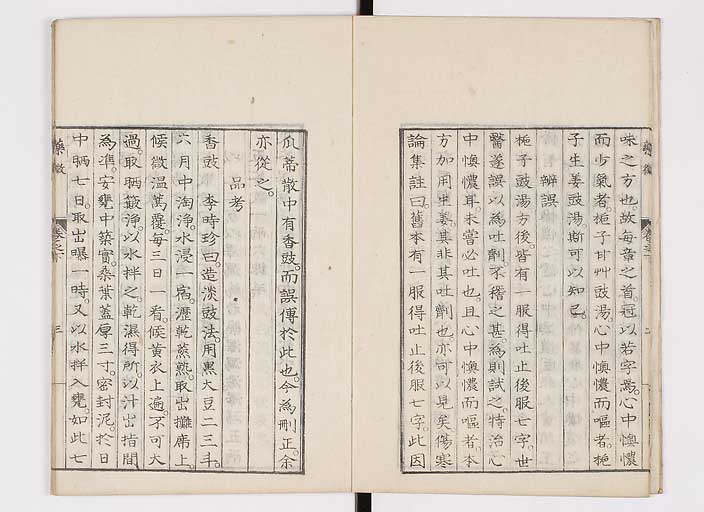 味之方也。故每章之首。冠以若字焉。心中懊憹
而少氣者。梔子甘艸豉湯。心中懊憹而嘔者。梔
子生姜豉湯。斯可以知已。
辨誤
梔子豉湯方後。皆有一服得吐止後服七字。世
醫遂誤以為吐劑。不稽之甚。為則試之。特治心
中懊憹耳。未嘗必吐也。且心中懊憹而嘔者。本
方加用生姜。其非其吐劑也。亦可以見矣。傷寒
論集註曰。舊本有一服得吐止後服七字。此因
瓜蒂散中有香豉。而誤傳於此也。今為刪正。余
亦從之。
品考
香豉 李時珍曰。造淡豉法。用黑大豆二三斗。
六月中淘淨。水浸一宿。瀝乾蒸熟。取出攤席上。
候微温蒿覆。每三日一看。候黃衣上遍。不可太
過。取晒簸淨。以水拌之。乾濕得所。以汁出指間
為準。安甕中築實。桑葉蓋厚三寸。密封泥。於日
中晒七日。取出曝一時。又以水拌入甕。如此七
藥徵
卷之下
三
藥徵
卷之下
二